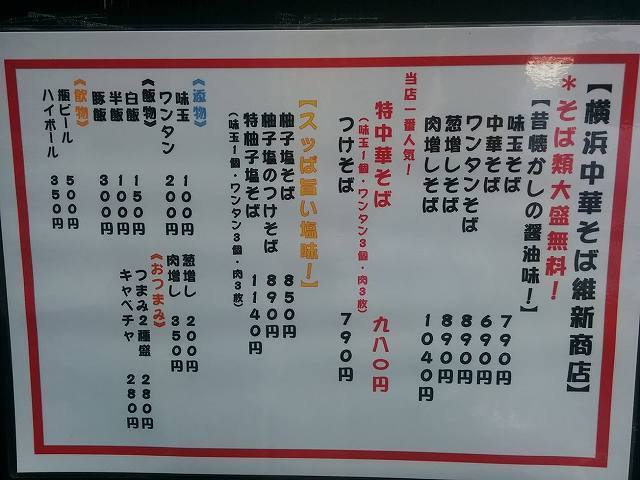 【横浜中華そば維新商店】
*そば類大盛無料！
【昔懐かしの醤油味！】
味玉そば 790円
中華そば 690円
ワンタンそば 890円
葱増しそば 890円
肉増しそば 1040円
当店一番人気！
特中華そば 九八〇円
（味玉1個・ワンタン3個・肉3枚）
つけそば 790円
【スッぱ旨い塩味！】
柚子塩そば 850円
柚子塩のつけそば 890円
特柚子塩そば 1140円
（味玉1個・ワンタン3個・肉3枚）
《添物》
味玉 100円
ワンタン 200円
葱増し 200円
肉増し 350円
《飯物》
白飯 150円
半飯 100円
豚飯 300円
《おつまみ》
つまみ2種盛 280円
キャベチャ 280円
《飲物》
瓶ビール 500円
ハイボール 350円